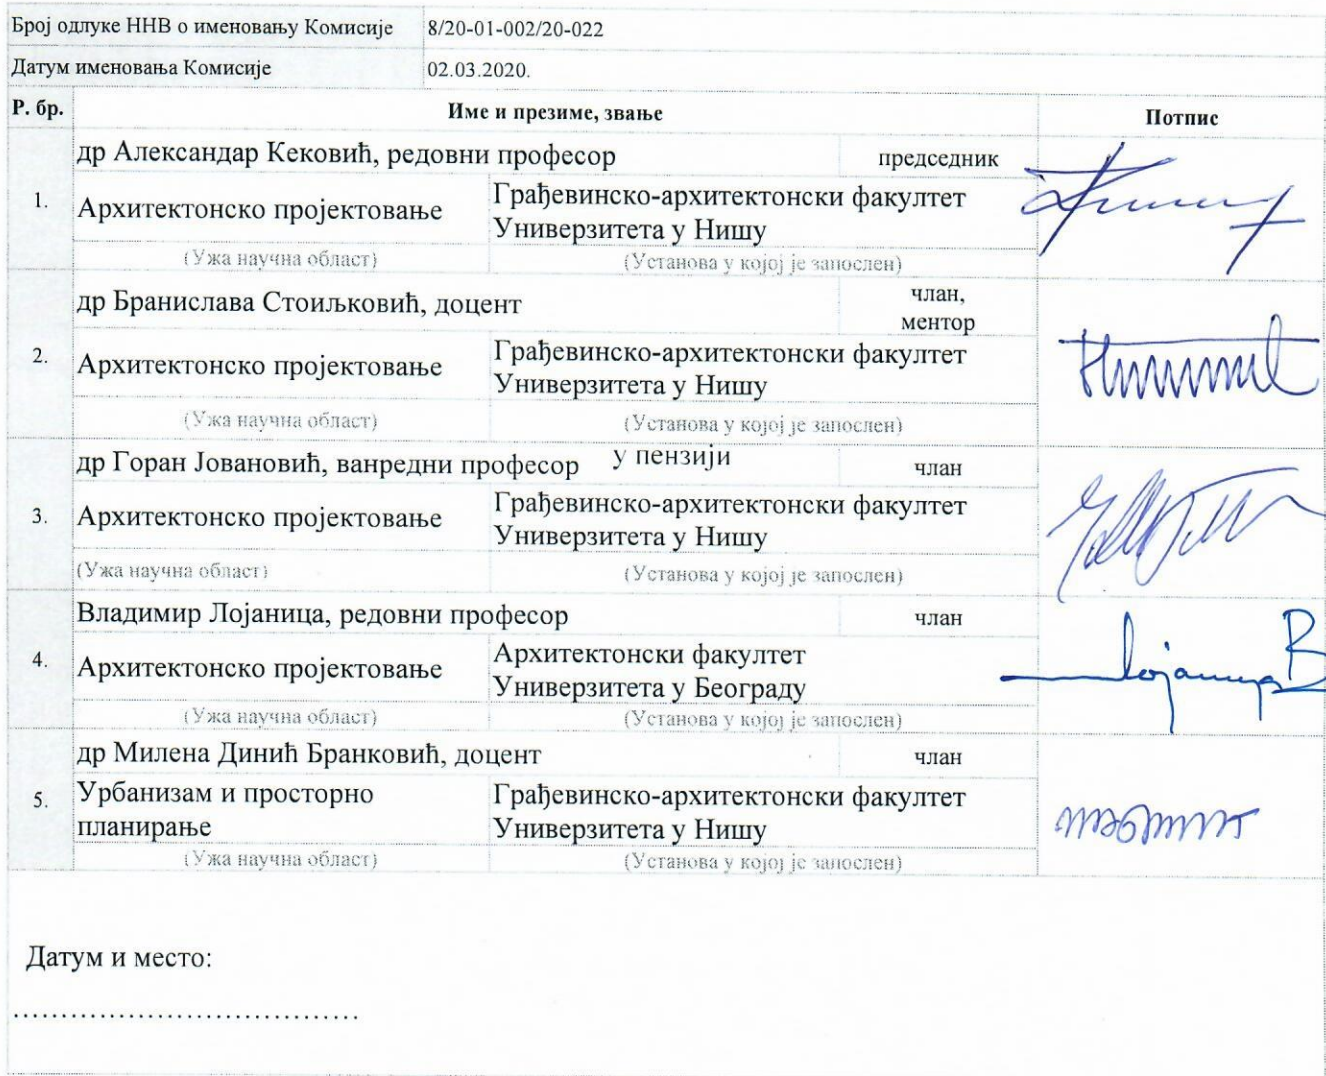 Број одлуке ННВ о именовању Комисије 8/20-01-002/20-022
Датум именовања Комисије 02.03.2020.
Р. бр. Име и презиме, звање Потпис
др Александар Кековић, редовни професор председник
1. Архитектонско пројектовање Грађевинско-архитектонски факултет
Универзитета у Нишу
(Ужа научна област) (Установа у којој је запослен)
др Бранислава Стоиљковић, доцент члан,
ментор
2. Архитектонско пројектовање Грађевинско-архитектонски факултет
Универзитета у Нишу
(Ужа научна област) (Установа у којој је запослен)
др Горан Јовановић, ванредни професор у пензији члан
3. Архитектонско пројектовање Грађевинско-архитектонски факултет
Универзитета у Нишу
(Ужа научна област) (Установа у којој је запослен)
Владимир Лојаница, редовни професор члан
4. Архитектонско пројектовање Архитектонски факултет
Универзитета у Београду
(Ужа научна област) (Установа у којој је запослен)
др Милена Динић Бранковић, доцент члан
5. Урбанизам и просторно Грађевинско-архитектонски факултет
планирање Универзитета у Нишу
(Ужа научна област) (Установа у којој је запослен)
Датум и место:
....................................